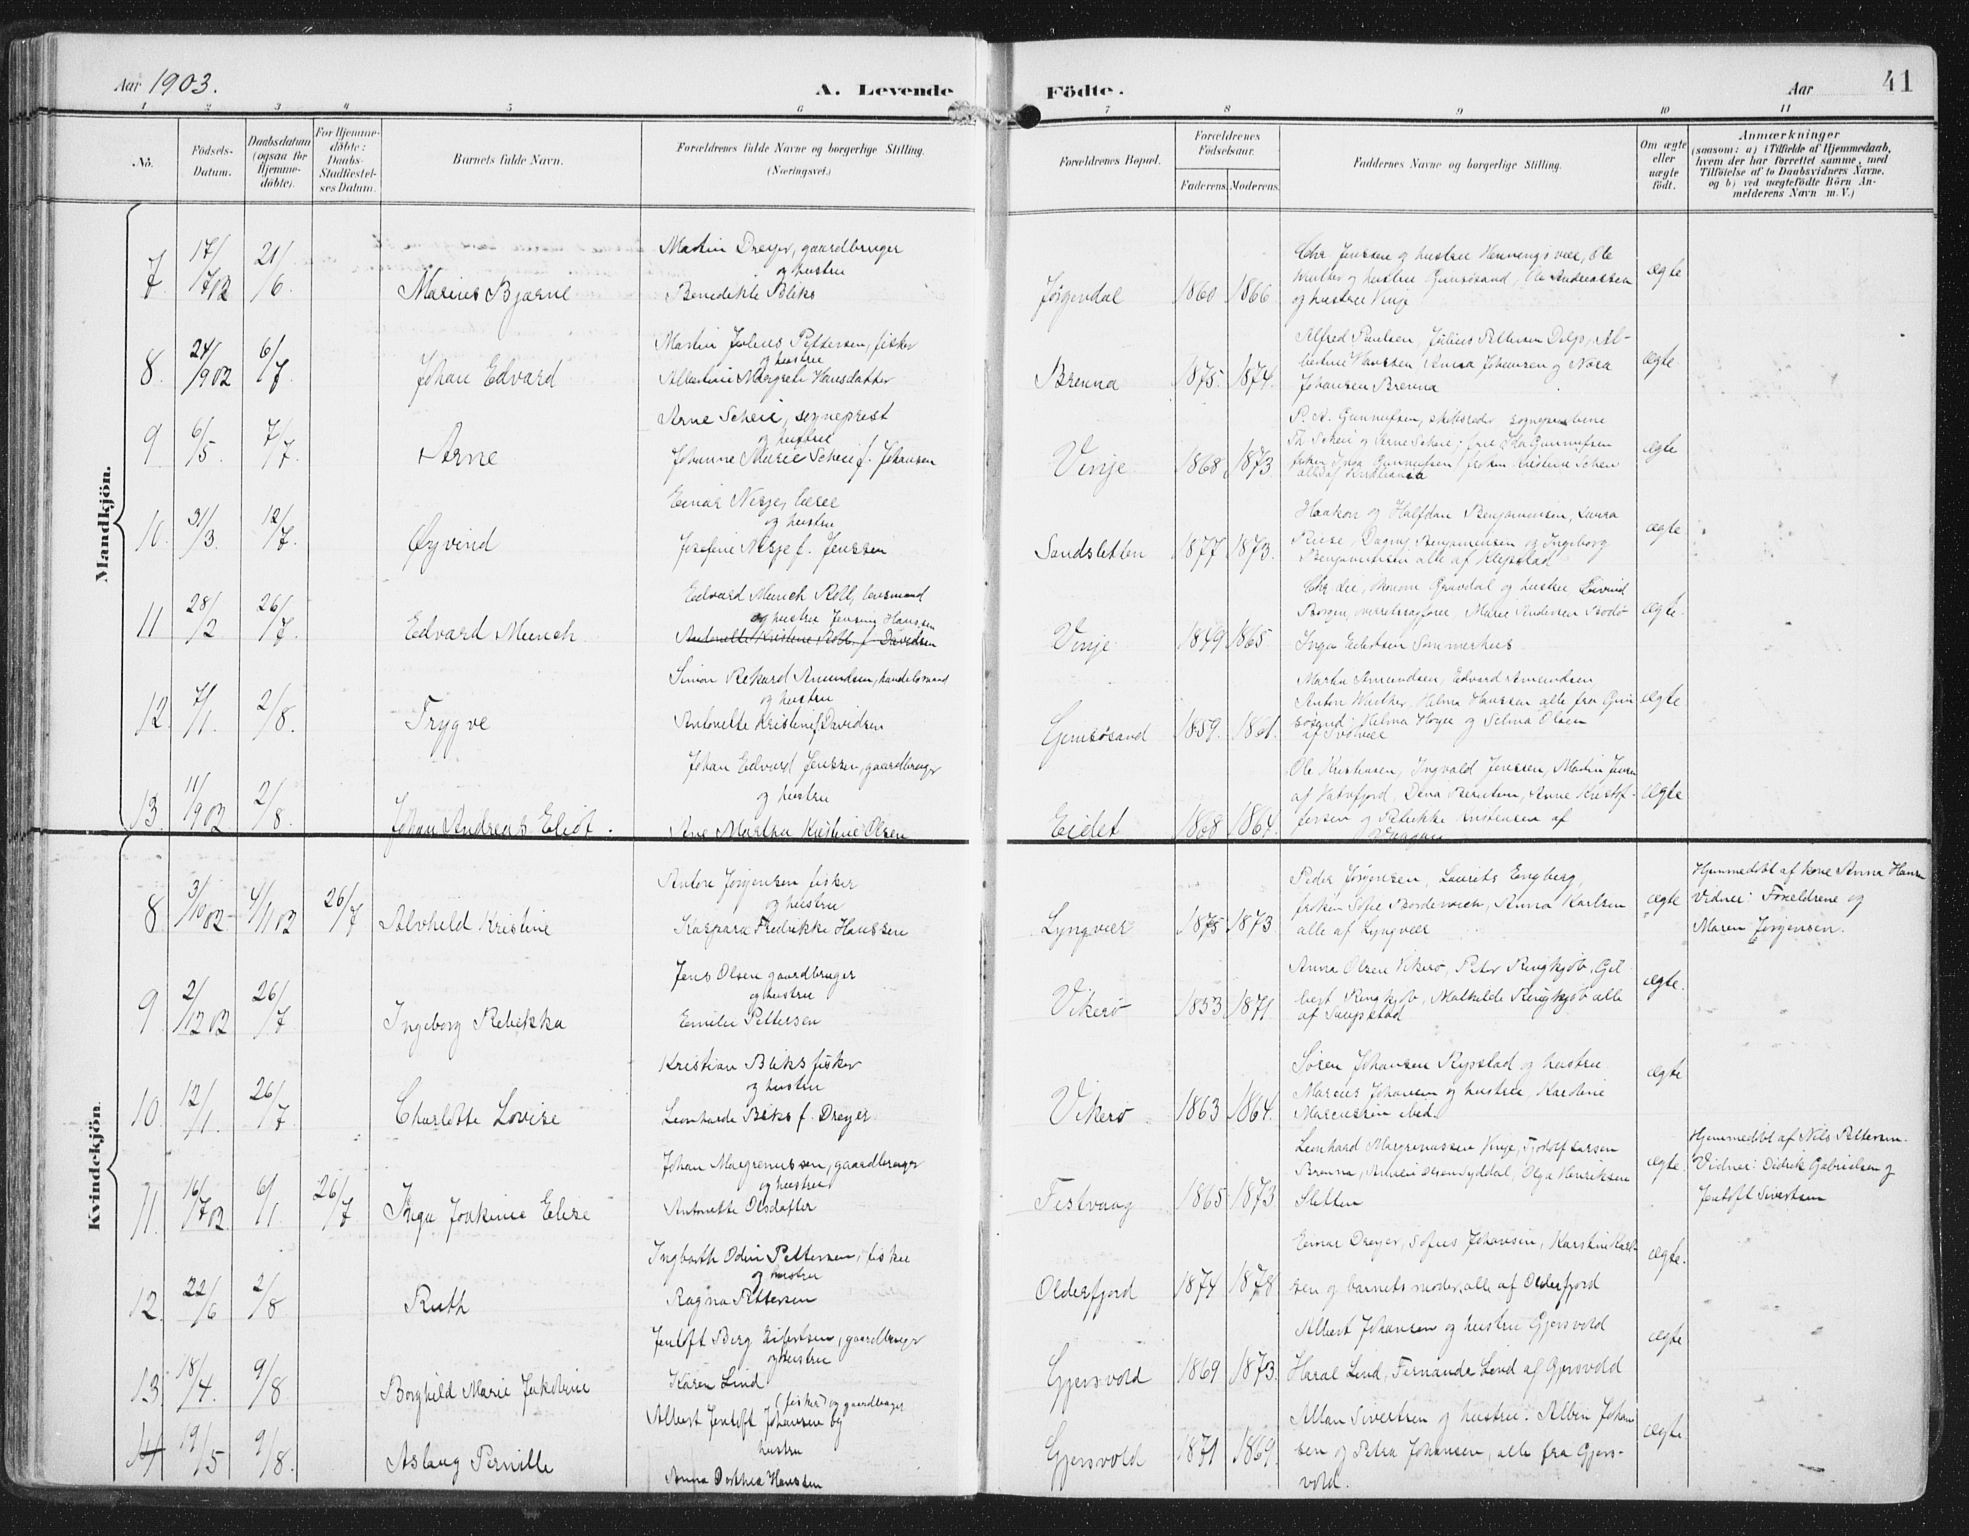 Aar 1903.
A. Levende Födte.
Aar
41
1 2 3 4 5 6 7 8 9 10 11
No.
Födsels-Datum.
Daabsdatum (ogsaa for Hjemme-döbte).
For Hjemme-döbte: Daabs-Stadfæstel-ses Datum.
Barnets fulde Navn.
Forældrenes fulde Navne og borgerlige Stilling.
(Næringsvei.)
Forældrenes Bopæl.
Forældrenes Födselsaar.
Faderens. Moderens.
Faddernes Navne og borgerlige Stilling.
Om ægte eller uægte födt.
Anmærkninger
(saasom: a) i Tilfælde af Hjemmedaab,
hvem der har forrettet samme, med
Tilföielse af to Daabsvidners Navne,
og b) ved uægtefödte Börn An-
melderens Navn m. V.)
Mandkjön.
7 17/702 21/6 Marius Bjarne
Martin Dreyer, gaardbruger
og hustru
Benedikte Bliks
Jørgendal 1860 1866
Chr Jenssen og hustru Henningsvær, Ole
og hustru Gimsøsand, Ole Andreassen
og hustru Vinje
ægte
8. 24/902 6/7. Johan Edvard
Martin Julius Pettersen, fisker
og hustru
Albertine Margrete Hansdatter
Brenna 1875. 1874.
Alfred Paulsen, Julius Pettersen Delp, Al-
bertine Hanssen Anna Johansen og Nora
Johansen Brenna
ægte
9 6/5. 7/7 Arne
Arne Scheie, sogneprest
og hustru
Johanne Marie Scheie f. Johansen
Vinje 1868 1873
P. A. Gunnufsen,
Th Scheie og Arne Scheie; Gunnufsen
frøken Inga Gunnufsen, frøken Kristine Scheie
ægte
10. 31/3. 12/7. Øyvind
Einar Nesje, lærer
og hustru
Josefine Nesje f. Jenssen
Sandsletten 1877 1873.
Haakon og Halfdan Benjaminsen, Laura
Riise, Dagny Benjaminsen og Ingeborg
Benjaminsen alle af Klepstad
ægte
11 28/2 26/7 Edvard Munch
Edvard Munch Roll, lensmand
og hustru Jensine Hanssen
Antonette Kristine Roll f. Davidsen
Vinje 1849 1865
Chr Lie, Gravdal og hustru
Borgen, Marie Andersen Bodø
Inga Sommerhus
ægte.
12. 7/1. 2/8 Trygve
Simon Rikard Amundsen, handelsmand
og hustru
Antonette Kristine f. Davidsen
Gimsøsand 1859. 1861.
Martin Amundsen, Edvard Amundsen
Anton Walther, Helma Hanssen alle fra Gim
søsand; Helma Høyer og Selma Olsen
af Svolvær
ægte
13. 11/902 2/8. Johan Andreas Eliot.
Johan Edvard Jenssen, gaardbruger
og hustru
Ane Martha Kristine Olsen
Eidet 1868 1864.
Ole Kristiansen, Ingvald Jenssen, Martin Jensen
af Vatnfjord, Dena Berntsen, Anne Kristof-
fersen og Petrikke Kristensen af
Vaagan
ægte
Kvindekjön.
8 3/1002- 4/1102 26/7 Alvhild Kristine
Antore Jørgensen fisker
og hustru
Kaspara Fredrikke Hanssen
Lyngvær 1875 1873.
Peder Jørgensen, Laurits Engberg,
frøken Sofie Borderwich, Anna Karlsen
alle af Lyngvær
ægte
Hjemmedøbt af kone Anna Hansen
Vidner: Forældrene og
Maren Jørgensen.
9 2/1202 26/7 Ingeborg Rebekka
Jens Olsen gaardbruger
og hustru
Emilie Pettersen
Vikerø 1853 1871
Anna Olsen Vikerø, Peter Ringkjøb, Gil-
bert Ringkjøb, Mathilde Ringkjøb alle
af
ægte.
10. 12/1. 26/7. Charlotte Lovise
Kristian Bliks fisker
og hustru
Leonharde Bliks f. Dreyer.
Vikerø 1863 1864.
Søren Johansen Rystad og hustru
Marius Johansen og hustru, Karoline
Marcussen ibid.
ægte
11. 16/702 6/1. 26/7 Inga Joakime Elise
Johan Margrenussen, gaardbruger
og hustru
Antonette Olsdatter
Festvaag 1865 1873
Leonhard Margrenussen Vinje, Fjodolf Larsen
Brenna, Olsen Syddal, Olga Henriksen
Sletten
ægte
Hjemmedøbt af Nils Pettersen.
Vidner: Didrik Gabrielsen og
Jentoft Sivertsen
12. 22/6 2/8 Ruth
Ingbarth Odin Pettersen, fisker
og hustru
Ragna Pettersen
Olderfjord 1874 1878
Einar Dreyer, Sofus Johansen, Karstine Karl-
sen og barnets moder, alle af Olderfjord
ægte.
13. 18/4. 9/8. Borghild Marie Jakobine
Jentoft Berg Eilertsen, gaardbruger
og hustru
Karen Lind
Gjersvold 1869 1873.
Albert Johansen og hustru Gjersvold
Haral Lind, Fernanda Lind af Gjersvold
ægte
14 19/5 9/8. Aslaug Pernille
(fisker) og gaardbruger
Albert Jentoft Johansen og
hustru
Anna Dorthea Hanssen
Gjersvold 1871 1869.
Allan Sivertsen og hustru. Albin Johan
sen og Petra Johansen, alle fra Gjers-
vold.
ægte